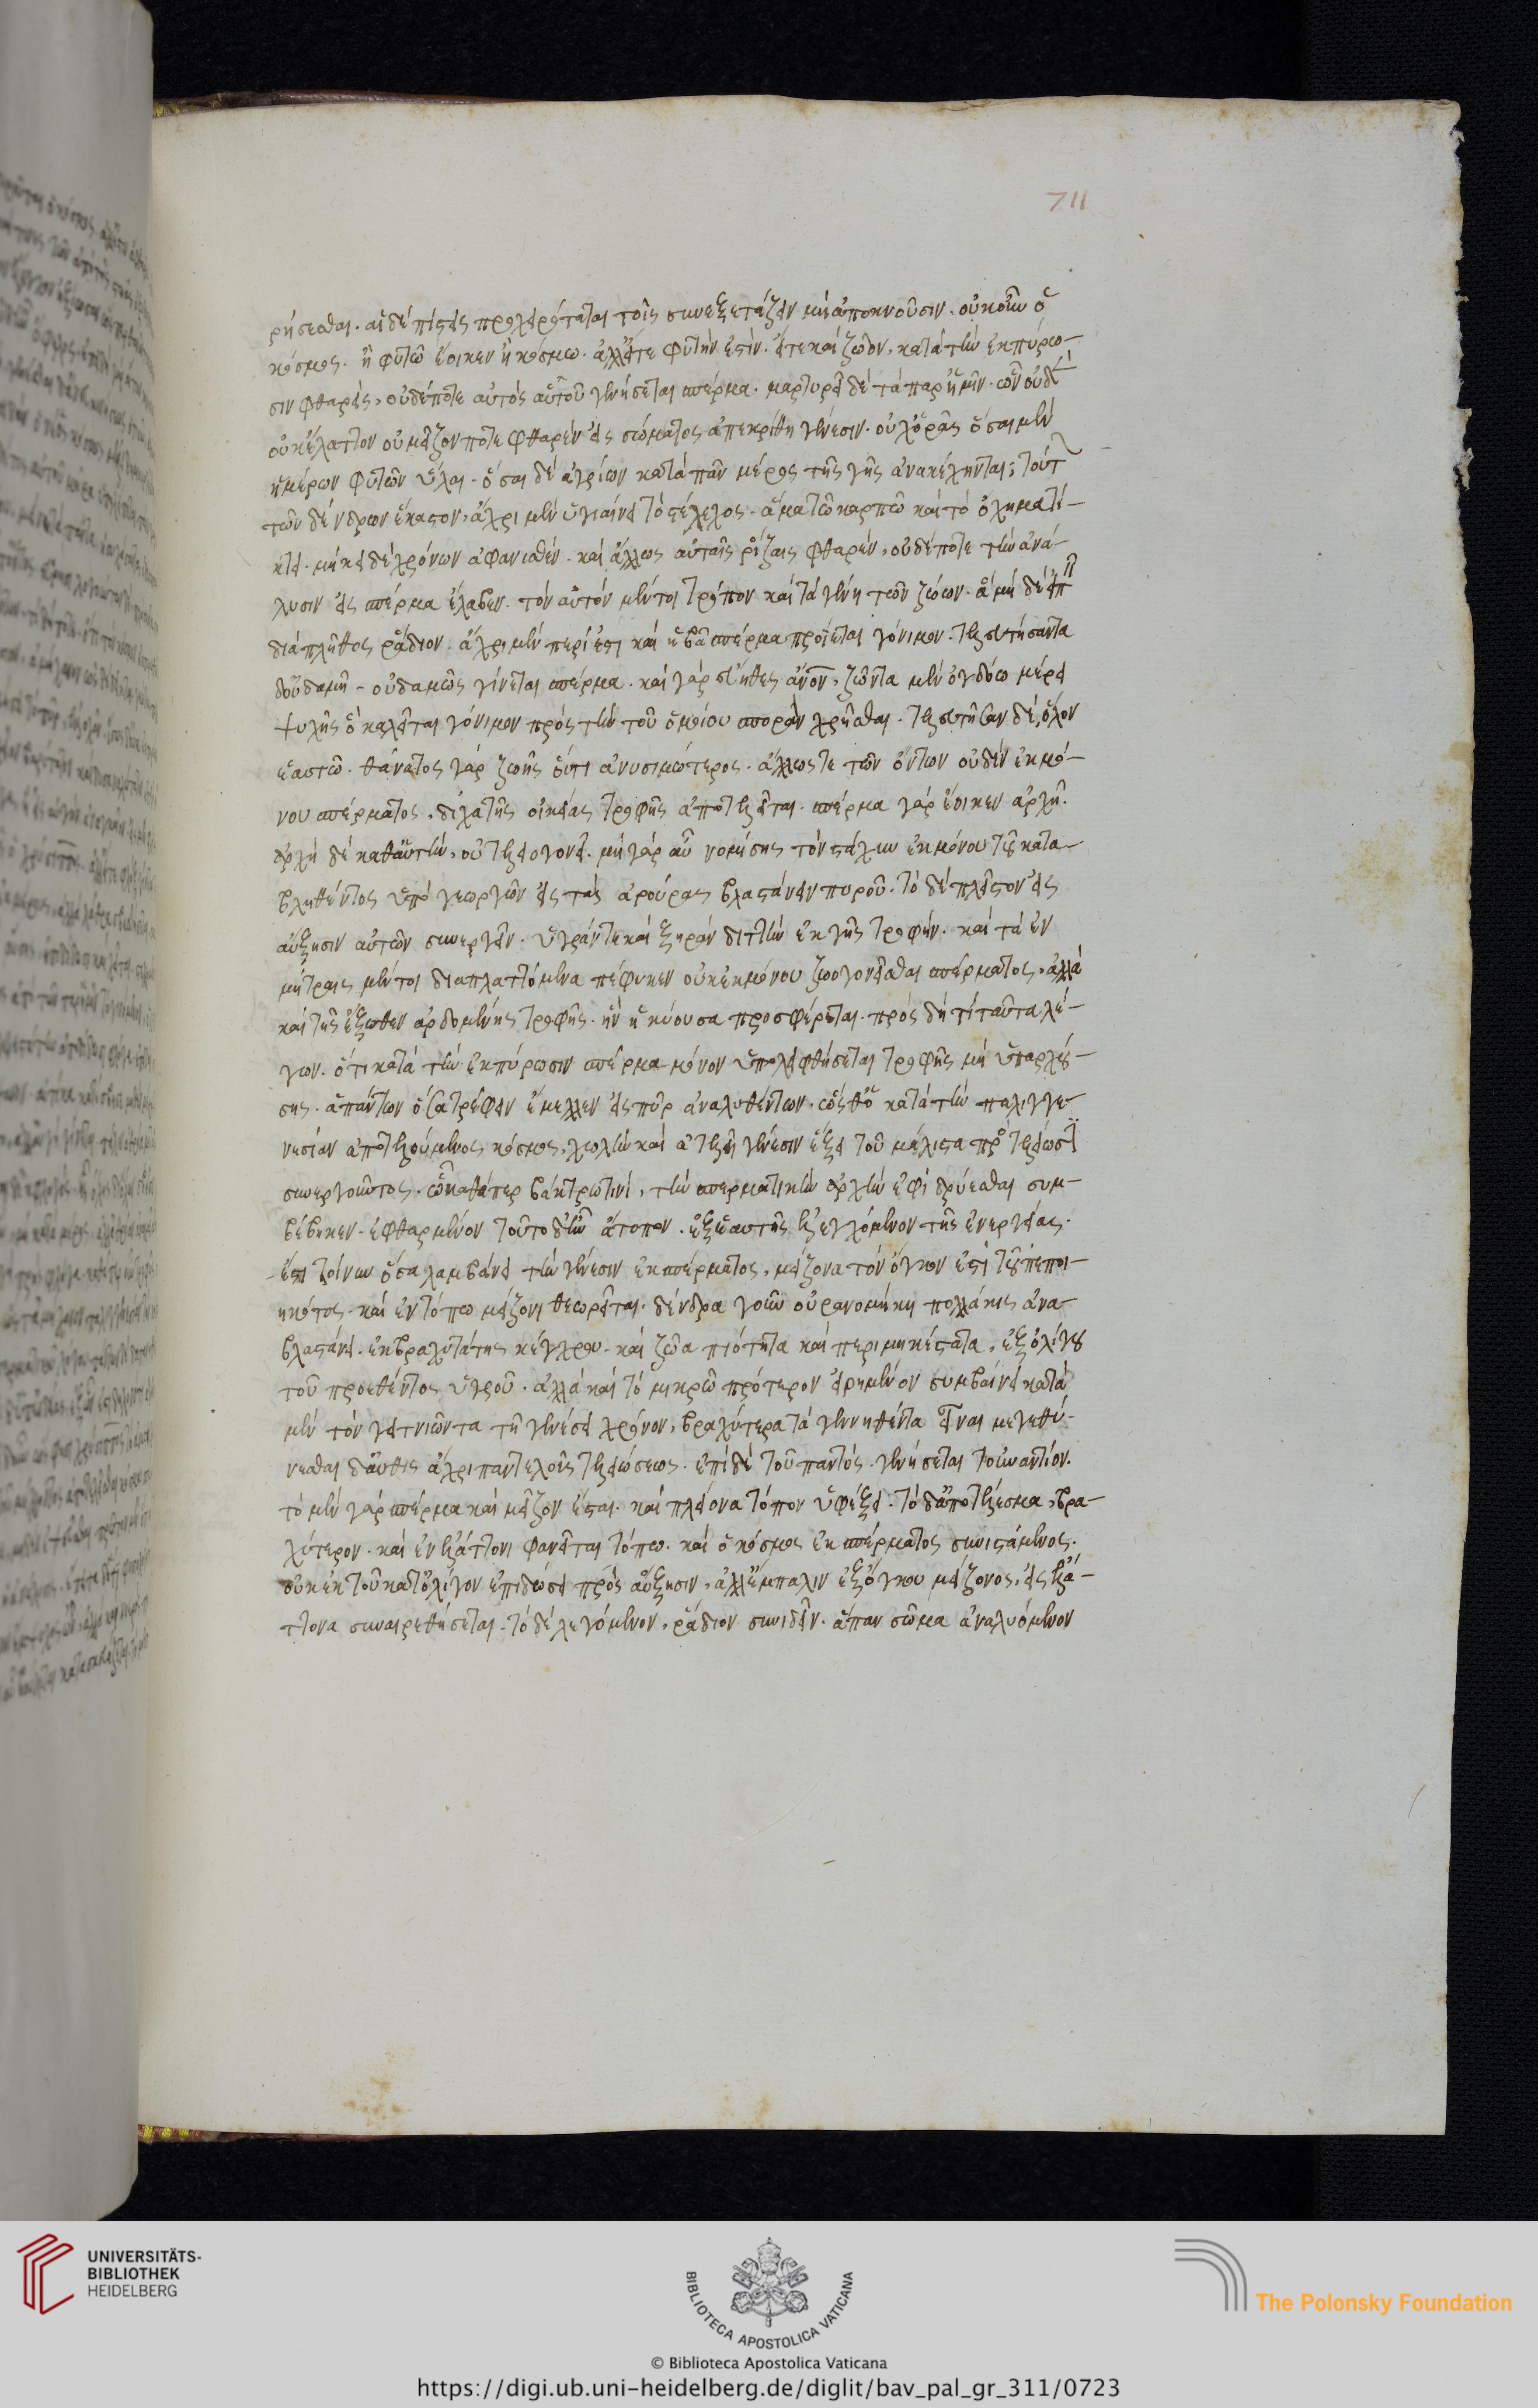 711
ρήσεσθαι. αἱ δὲ πίστεις προχειρόταται τοῖς συνεξετάζειν μὴ ἀποκνοῦσιν. οὐκοῦν ὁ
κόσμος. ἢ φυτῶ ἔοικεν ἢ κόσμω. ἀλλ' εἴτε φυτὸν ἐστὶν. εἴτε καὶ ζῶον, κατὰ τὴν ἐκπύρω-
σιν φθαρεὶς, οὐδέποτε αὐτὸς αὑτοῦ γενήσεται σπέρμα. μαρτυρεῖ δὲ τὰ παρ' ἡμῖν. ὧν οὐδὲν
οὐκ ἔλαττον οὐ μεῖζον ποτε φθαρὲν εἰς σώματος ἀπεκρίθη γένεσιν. οὐχ ὁρᾶς ὅσαι μὲν
ἡμέρων φυτῶν ὗλαι. ὅσαι δὲ ἀγρίων κατὰ πᾶν μέρος τῆς γῆς ἀνακέχηνται; τούτ
τῶν δένδρων ἕκαστον, ἄχρι μὲν ὑγιαίνει τὸ στέλεχος. ἅμα τῶ καρπῶ καὶ τὸ ὀχηματί-
κτει. μήκει δὲ χρόνων ἀφανισθὲν. καὶ ἄλλως αὐταῖς ῥίζαις φθαρὲν, οὐδέποτε τὴν ἀνά-
λυσιν εἰς σπέρμα ἔλαβεν. τὸν αὐτὸν μέντοι τρόπον καὶ τὰ γένη τῶν ζώων. ἃ μὴ δὲ εἰπ
διὰ πλῆθος ῥάδιον. ἄχρι μὲν περίεστι καὶ ἡβᾶ σπέρμα προίεται γόνιμον. τελευτήσαντα
δ' οὐδαμῆ. οὐδαμῶς γίνεται σπέρμα. καὶ γὰρ εὔηθες ἄνον, ζῶντα μὲν ὀγδόω μέρει
ψυχῆς ὃ καλεῖται γόνιμον πρὸς τὴν τοῦ ὁμοίου σπορὰν χρῆσθαι. τελευτῆσαν δὲ, ὅλον
ἑαυτῶ. θάνατος γὰρ ζωῆς οὔτι ἀνυσιμώτερος. ἄλλως τε τῶν ὄντων οὐδὲν ἐκ μό-
νου σπέρματος, δίχα τῆς οἰκείας τροφῆς ἀποτελεῖται. σπέρμα γὰρ ἔοικεν ἀρχῆ.
ἀρχὴ δὲ καθ' αὑτὴν, οὐ τελειογονεῖ. μὴ γὰρ αὖ νομίσης τὸν στάχυν ἐκ μόνου τοῦ κατα-
βληθέντος ὑπὸ γεωργῶν εἰς τὰς ἀρούρας βλαστάνειν πυροῦ. τὸ δὲ πλεῖστον εἰς
αὔξησιν αὐτῶν συνεργεῖν. ὑγρὰν τε καὶ ξηρὰν διττὴν ἐκ γῆς τροφήν. καὶ τὰ ἐν
μήτραις μέντοι διαπλαττόμενα πέφυκεν οὐκ ἐκ μόνου ζωογονεῖσθαι σπέρματος, ἀλλὰ
καὶ τῆς ἔξωθεν ἀρδομένης τροφῆς. ἣν ἡ κύουσα προσφέρεται. πρὸς δὴ τί ταῦτα λέ-
γων. ὅτι κατὰ τὴν ἐκπύρωσιν σπέρμα μόνον ὑπολειφθήσεται τροφῆς μὴ ὑπαρχού-
σης. ἁπάντων ὅσα τρέφειν ἔμελλεν εἰς πῦρ ἀναλυθέντων. ὥσθ' ὁ κατὰ τὴν παλιγγε-
νεσίαν ἀποτελούμενος κόσμος, χωλὴν καὶ ἀτελῆ γένεσιν ἕξει τοῦ μάλιστα πρὸς τελείωσιν
συνεργοῦντος. ὧ καθάπερ βάκτρω τινὶ, τὴν σπερματικὴν ἀρχὴν ἐφιδρύεσθαι συμ-
βέβηκεν. ἐφθαρμένον τοῦτο δ' ἦν ἄτοπον. ἐξ ἑαυτῆς ἐλεγχόμενον τῆς ἐνεργείας.
ἔτι τοίνυν ὅσα λαμβάνει τὴν γένεσιν ἐκ σπέρματος, μείζονα τὸν ὄγκον ἐστὶ τοῦ πεποι-
ηκότος. καὶ ἐν τόπω μείζονι θεωρεῖται. δένδρα γοῦν οὐρανομήκη πολλάκις ἀνα-
βλαστάνει. ἐκ βραχυτάτης κέγχρου. καὶ ζῶα πιότητα καὶ περιμηκέστατα, ἐξ ὀλίγου
τοῦ προεθέντος ὑγροῦ. ἀλλὰ καὶ τὸ μικρῶ πρότερον εἰρημένον συμβαίνει κατὰ
μὲν τὸν γειτνιῶντα τῆ γενέσει χρόνον, βραχύτερα τὰ γεννηθέντα εἶναι μεγεθύ-
νεσθαι δ' αὖθις ἄχρι παντελοῦς τελειώσεως. ἐπὶ δὲ τοῦ παντὸς. γενήσεται τοὐναντίον.
τὸ μὲν γὰρ σπέρμα καὶ μεῖζον ἔσται. καὶ πλείονα τόπον ὑφέξει. τὸ δ' ἀποτέλεσμα, βρα-
χύτερον. καὶ ἐν ἐλάττονι φανεῖται τόπω. καὶ ὁ κόσμος ἐκ σπέρματος συνιστάμενος.
οὐκ ἐκ τοῦ κατ' ὀλίγον ἐπιδώσει πρὸς αὔξησιν, ἀλλ' ἔμπαλιν ἐξ ὄγκου μείζονος, εἰς ἐλά-
ττονα συναιρεθήσεται. τὸ δὲ λεγόμενον, ῥάδιον συνιδεῖν. ἅπαν σῶμα ἀναλυόμενον
UNIVERSITÄTS-
BIBLIOTHEK
HEIDELBERG
BIBLIOTECA APOSTOLICA VATICANA
The Polonsky Foundation
© Biblioteca Apostolica Vaticana
https://digi.ub.uni-heidelberg.de/diglit/bav_pal_gr_311/0723